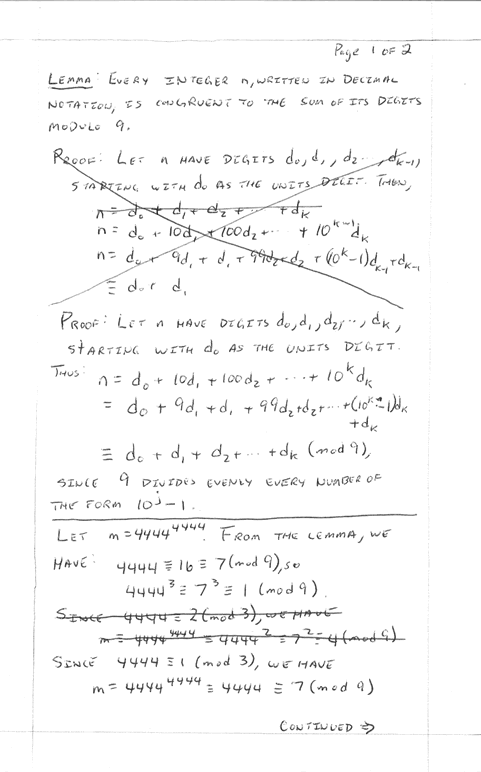 Page 1 of 2
LEMMA: EVERY INTEGER n, WRITTEN IN DECIMAL
NOTATION, IS CONGRUENT TO THE SUM OF ITS DIGITS
MODULO 9.
PROOF: LET n HAVE DIGITS d₀, d₁, d₂ ..., dₖ₋₁,
STARTING WITH d₀ AS THE UNITS DIGIT. THEN,
n = d₀ + d₁ + d₂ + ... + dₖ
n = d₀ + 10d₁ + 100d₂ + ... + 10ᵏ⁻¹dₖ
n = d₀ + 9d₁ + d₁ + 99d₂ + d₂ + (10ᵏ-1)dₖ₋₁ + dₖ₋₁
≡ d₀ + d₁
PROOF: LET n HAVE DIGITS d₀, d₁, d₂, ..., dₖ,
STARTING WITH d₀ AS THE UNITS DIGIT.
THUS: n = d₀ + 10d₁ + 100d₂ + ... + 10ᵏdₖ
= d₀ + 9d₁ + d₁ + 99d₂ + d₂ + ... + (10ᵏ-1)dₖ
+dₖ
≡ d₀ + d₁ + d₂ + ... + dₖ (mod 9),
SINCE 9 DIVIDES EVENLY EVERY NUMBER OF
THE FORM 10ʲ-1.
LET m = 4444⁴⁴⁴⁴. FROM THE LEMMA, WE
HAVE: 4444 ≡ 16 ≡ 7 (mod 9), so
4444³ ≡ 7³ ≡ 1 (mod 9).
SINCE 4444 ≡ 2 (mod 3), WE HAVE
m = 4444⁴⁴⁴⁴ ≡ 4444² ≡ 7² ≡ 4 (mod 9)
SINCE 4444 ≡ 1 (mod 3), WE HAVE
m = 4444⁴⁴⁴⁴ ≡ 4444 ≡ 7 (mod 9)
CONTINUED ⇒